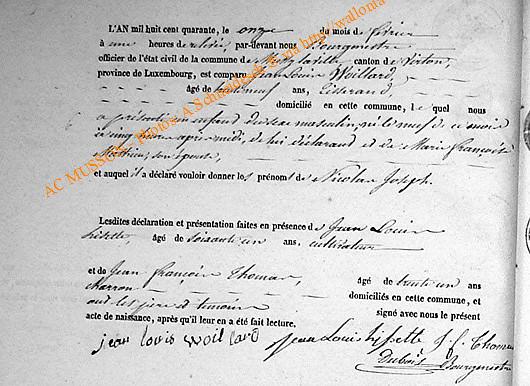 L'AN mil huit cent quarante, le onze du mois de février
à une heures de relevée, par-devant nous Bourgmestre
officier de l'état civil de la commune de canton de Virton,
province de Luxembourg, est comparu Jean Louis Woillard,
âgé de ans, Tisserand,
domicilié en cette commune, lequel nous
a présenté un enfant du sexe masculin, né le neuf de ce mois
à cinq heures après-midi, de lui déclarant et de Marie françoise
Mathieu, son épouse,
et auquel il a déclaré vouloir donner les prénoms de Nicolas Joseph.
Lesdites déclaration et présentation faites en présence de Jean Louis
âgé de soixante un ans, cultivateur
et de Jean françois Thomas, âgé de trente un ans
charron domiciliés en cette commune, et
ont les père et témoins signé avec nous le présent
acte de naissance, après qu'il leur en a été fait lecture.
jean louis woillard
Jean Louis J. f. Thomas
Dubois Bourgmestre
AC MUSSON - Photos: A Schmidgen © via http://wallonia